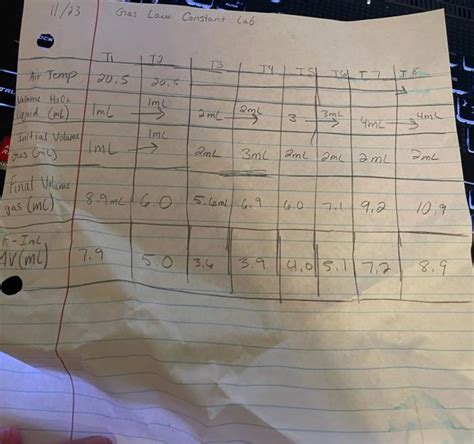 11/23 Gas Law Constant Lab
T1 T2 T3 T4 T5 T6 T7 T8
Air Temp 20.5 20.5
Volume H2O2
liquid (mL) 1mL → 1mL 2mL → 2mL 3 → 3mL 4mL → 4mL
Initial Volume
gas (mL) 1mL → 1mL 2mL 3mL 2mL 2mL 2mL 2mL
Final Volume
gas (mL) 8.9mL 6.0 5.6mL 6.9 6.0 7.1 9.2 10.9
F-Inl
ΔV(mL) 7.9 5.0 3.6 3.9 4.0 5.1 7.2 8.9